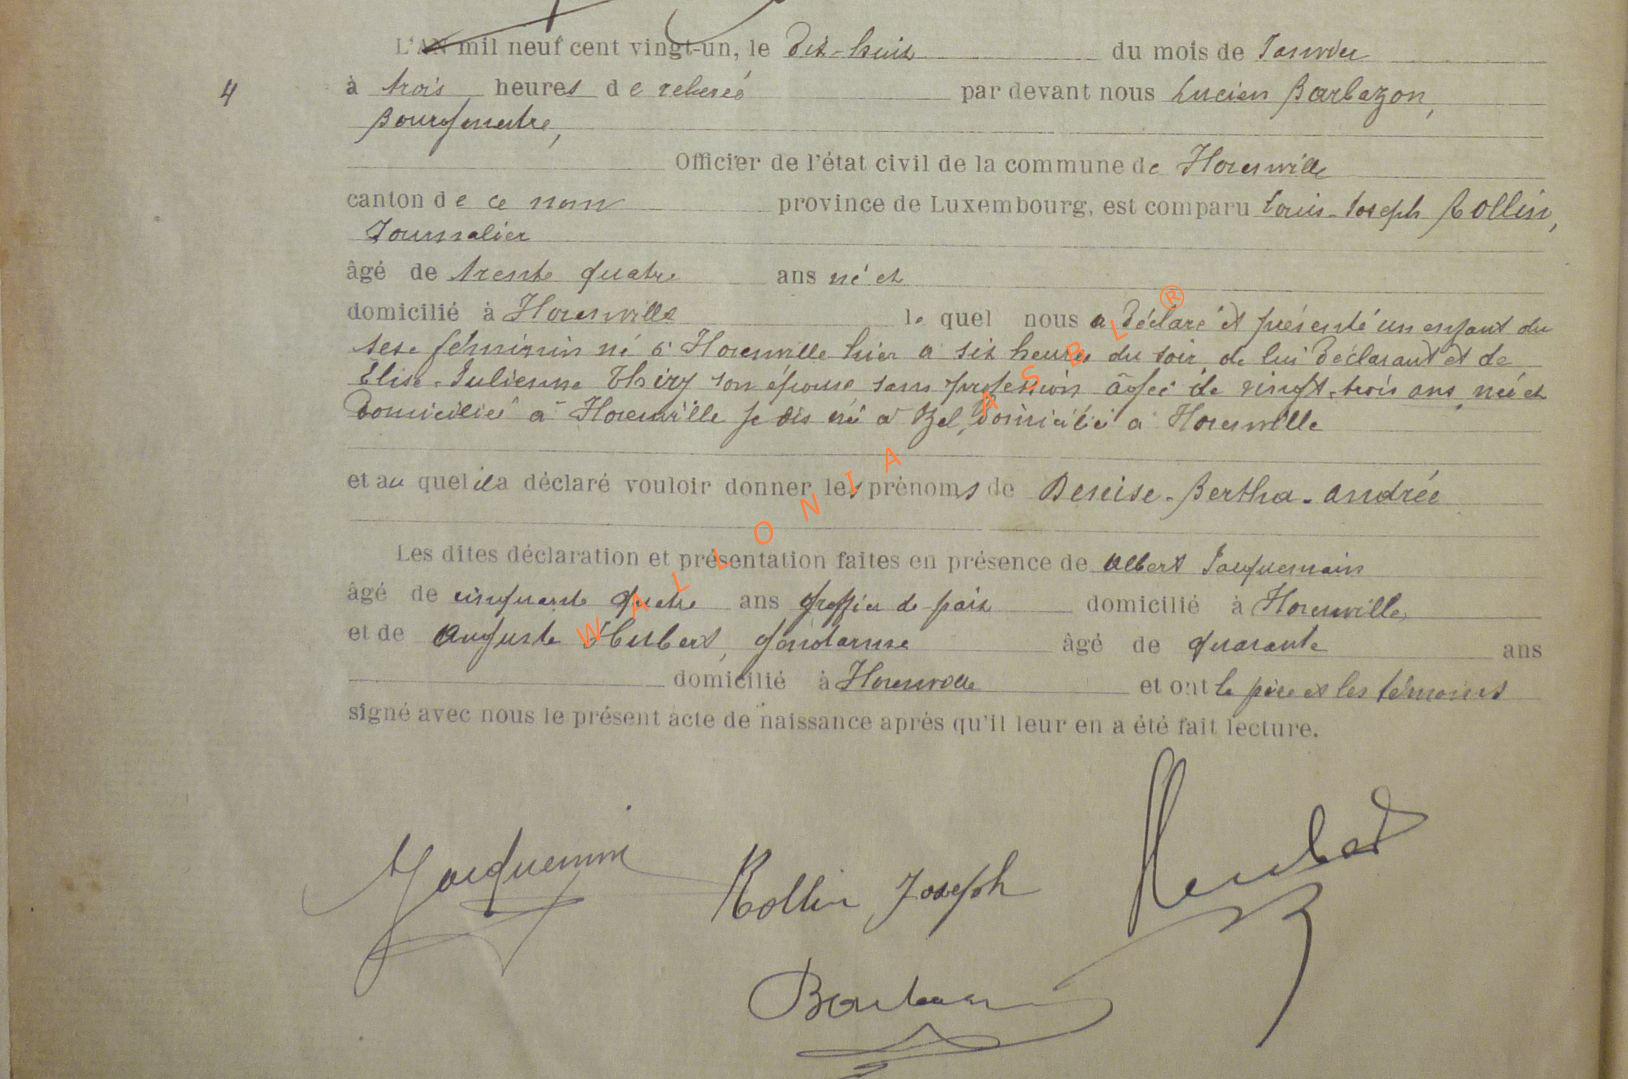 L'AN mil neuf cent vingt-un, le Dix-huit du mois de Janvier
4 à trois heures de relevée par devant nous Lucien Barbazon,
Bourgmestre,
Officier de l'état civil de la commune de Houmville
canton de ce nom province de Luxembourg, est comparu Louis-Joseph Rollin,
Journalier
âgé de trente quatre ans né et
domicilié à le quel nous a déclaré et présenté un enfant du
sexe féminin né à hier à six heures du soir, de lui déclarant et de
Elise-Julienne Thiry son épouse sans profession âgée de vingt-trois ans, née et
domiciliée à je dis né à domicilié à
et au quel il a déclaré vouloir donner les prénoms de Denise-Bertha-Andrée
Les dites déclaration et présentation faites en présence de Albert Jacquemain
âgé de cinquante quatre ans greffier de paix domicilié à
et de Auguste Hubert, gendarme âgé de quarante ans
domicilié à et ont le père et les témoins
signé avec nous le présent acte de naissance après qu'il leur en a été fait lecture.
WALLONIA ASBL ®
Jacquemin Rollin Joseph Hubert